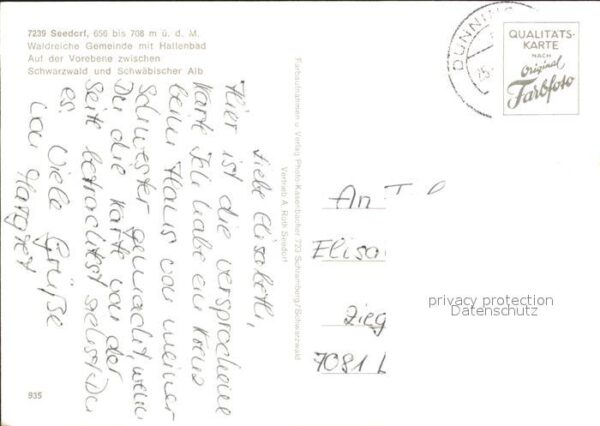 7239 Seedorf, 656 bis 708 m ü. d. M.
Waldreiche Gemeinde mit Hallenbad
Auf der Vorebene zwischen
Schwarzwald und Schwäbischer Alb
Liebe Elisabeth,
Hier ist die versprochene
Karte. Ich habe ein Kreuz
beim Haus von meiner
Schwester gemacht, wenn
Du die Karte von der
Seite betrachtest siehst Du
es. Viele Grüße
von Margret
Farbaufnahmen u. Verlag Photo-Kasenbacher 723 Schramberg/Schwarzwald
Vertrieb A. Roth Seedorf
DUNNING
QUALITÄTS-
KARTE
NACH
Original
Farbfoto
An
Elisa
Zieg
7081 L
privacy protection
Datenschutz
935